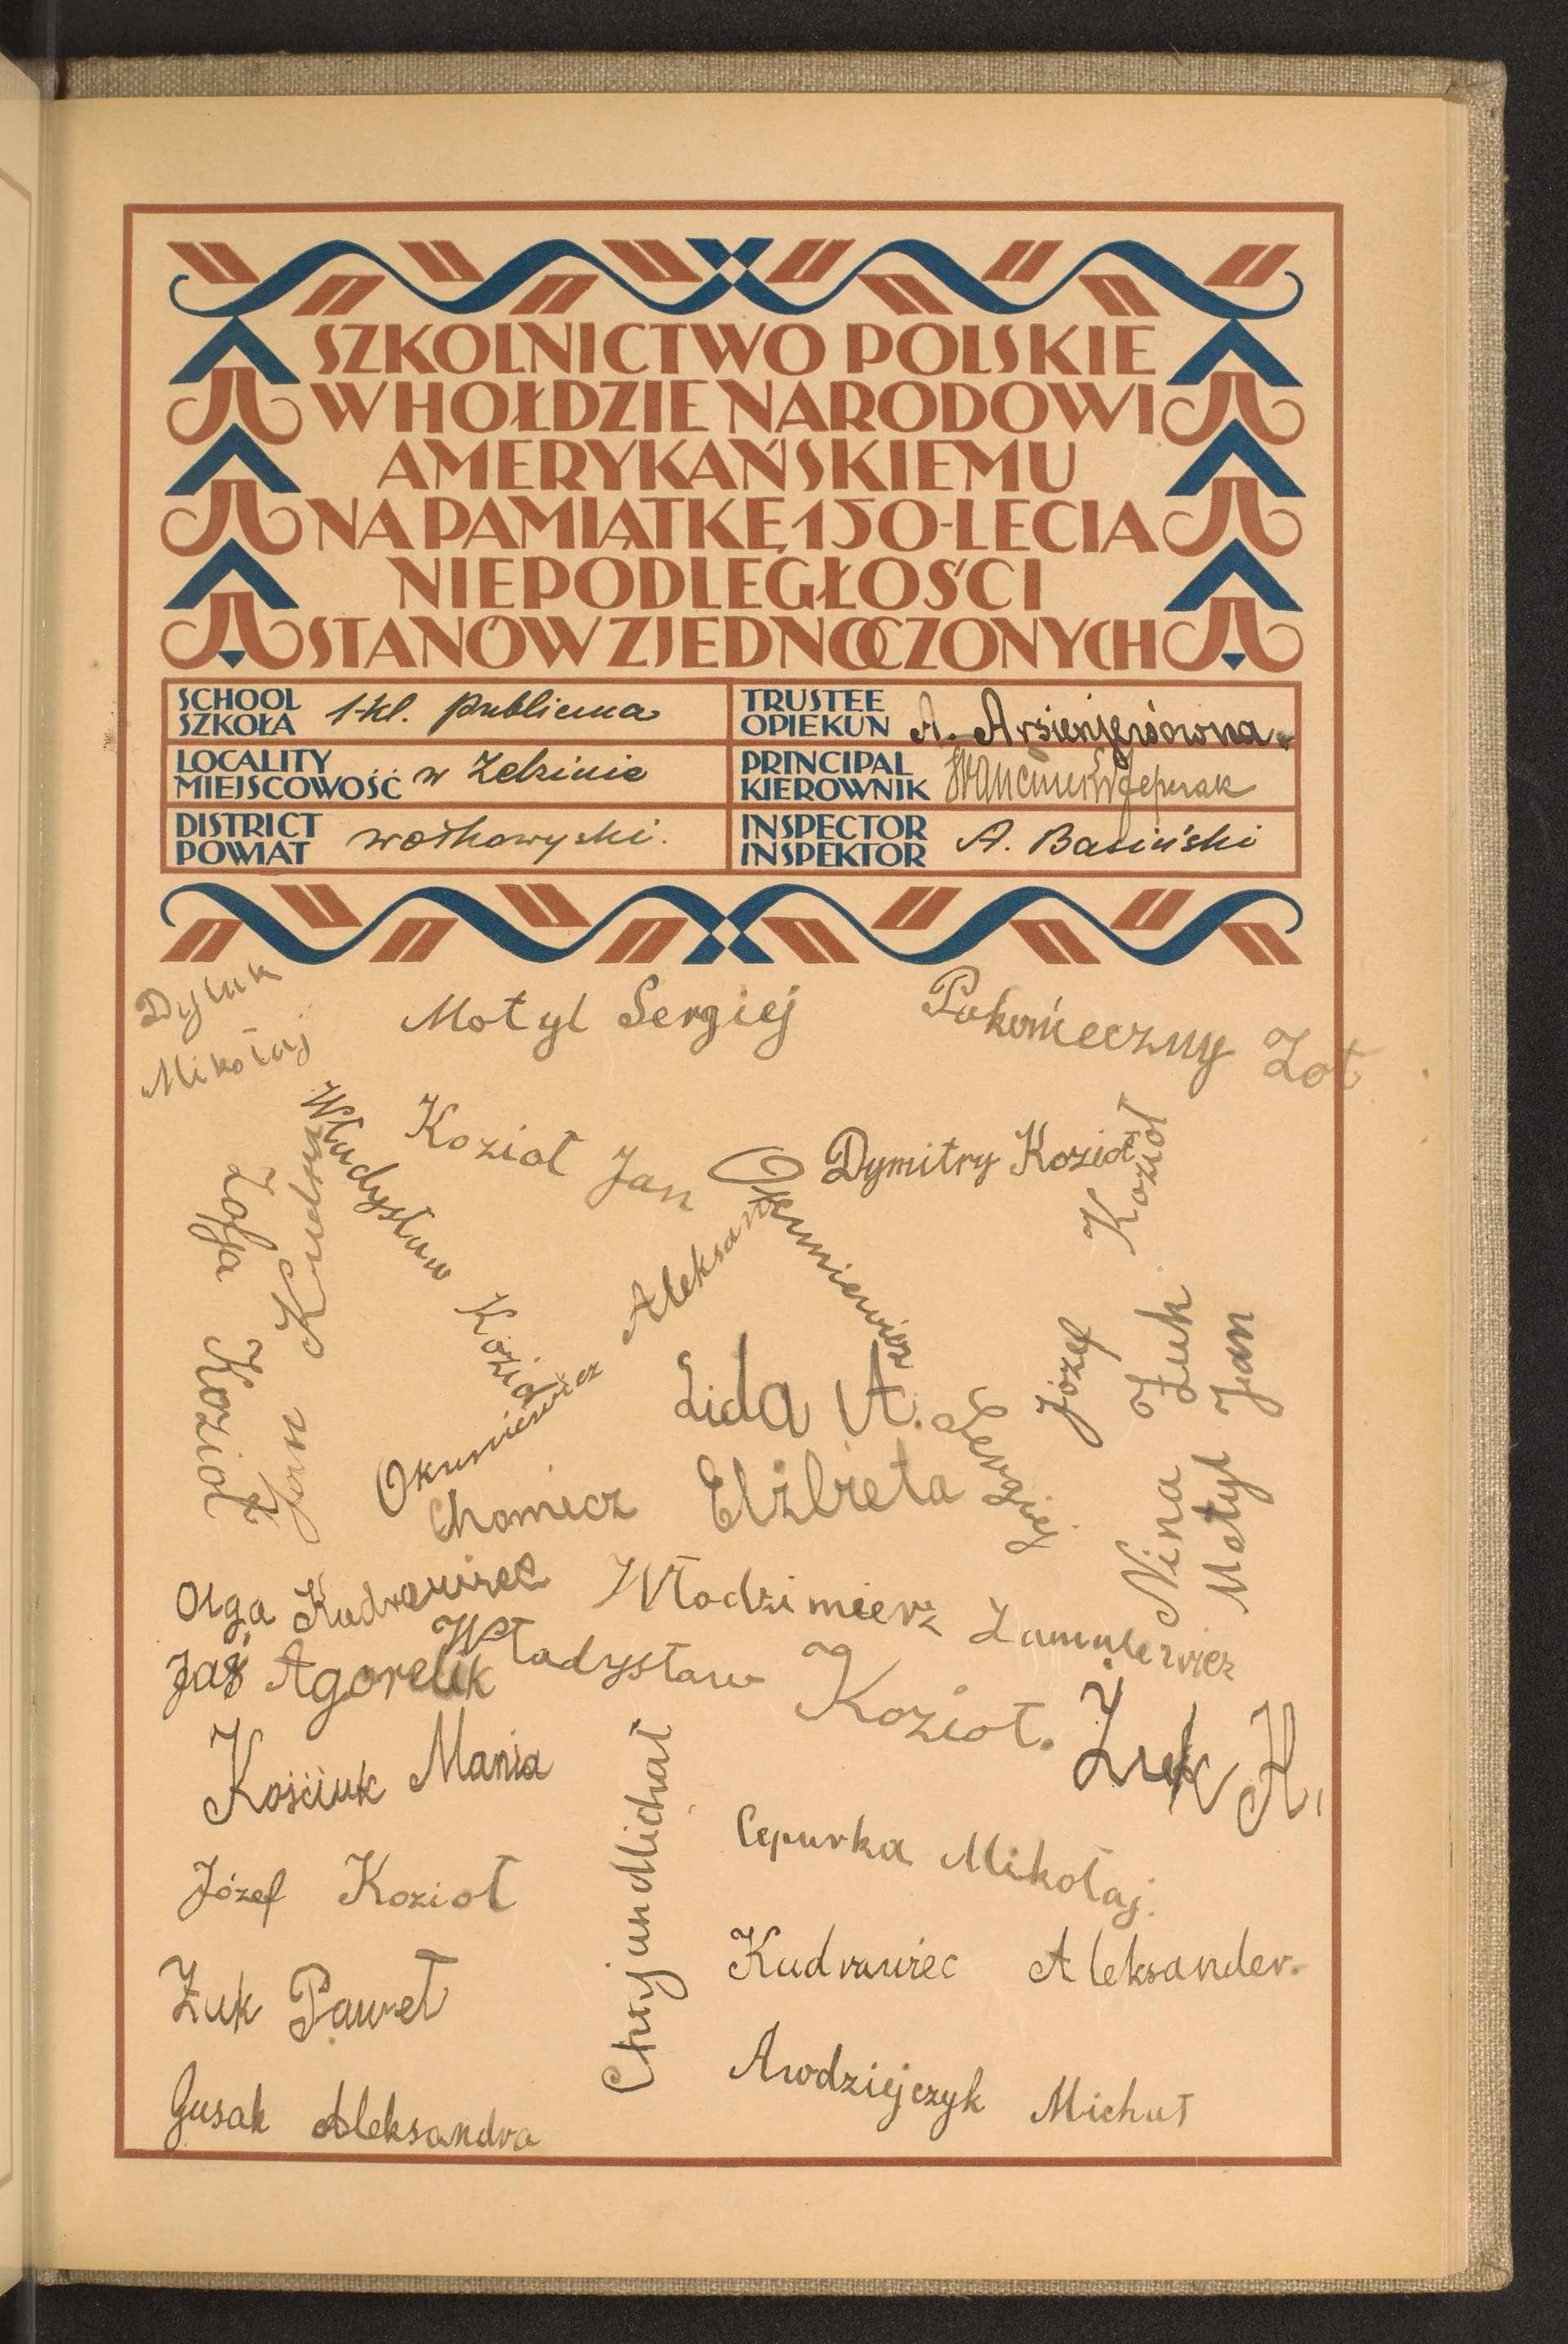 SZKOLNICTWO POLSKIE
W HOŁDZIE NARODOWI
AMERYKAŃSKIEMU
NA PAMIĄTKĘ 150-LECIA
NIEPODLEGŁOŚCI
STANÓW ZJEDNOCZONYCH
SCHOOL
SZKOŁA 1-kl. publiczna
TRUSTEE
OPIEKUN A. Arsienjewówna
LOCALITY
MIEJSCOWOŚĆ w Zelzinie
PRINCIPAL
KIEROWNIK
DISTRICT
POWIAT wołkowyski.
INSPECTOR
INSPEKTOR A. Basiński
Mikołaj
Motyl Sergiej
Pokonieczny Zot
Władysław Kozioł
Kozioł Jan
Dymitry Kozioł
Zofja Kozioł
Jan
Okuniewicz Aleksan
Okuniewicz Sergiej
Józef Kozioł
Nina Żuk
Motyl Jan
Lida A.
Chomicz Elżbieta
Olga Kudrawiec
Włodzimierz
Jaś Agorelik
Władysław Kozioł.
Żuk H.
Kościuk Mania
Michał
Cepurka Mikołaj.
Józef Kozioł
Kudrawiec Aleksander.
Żuk Paweł
Awodziejczyk Michał
Gusak Aleksandra